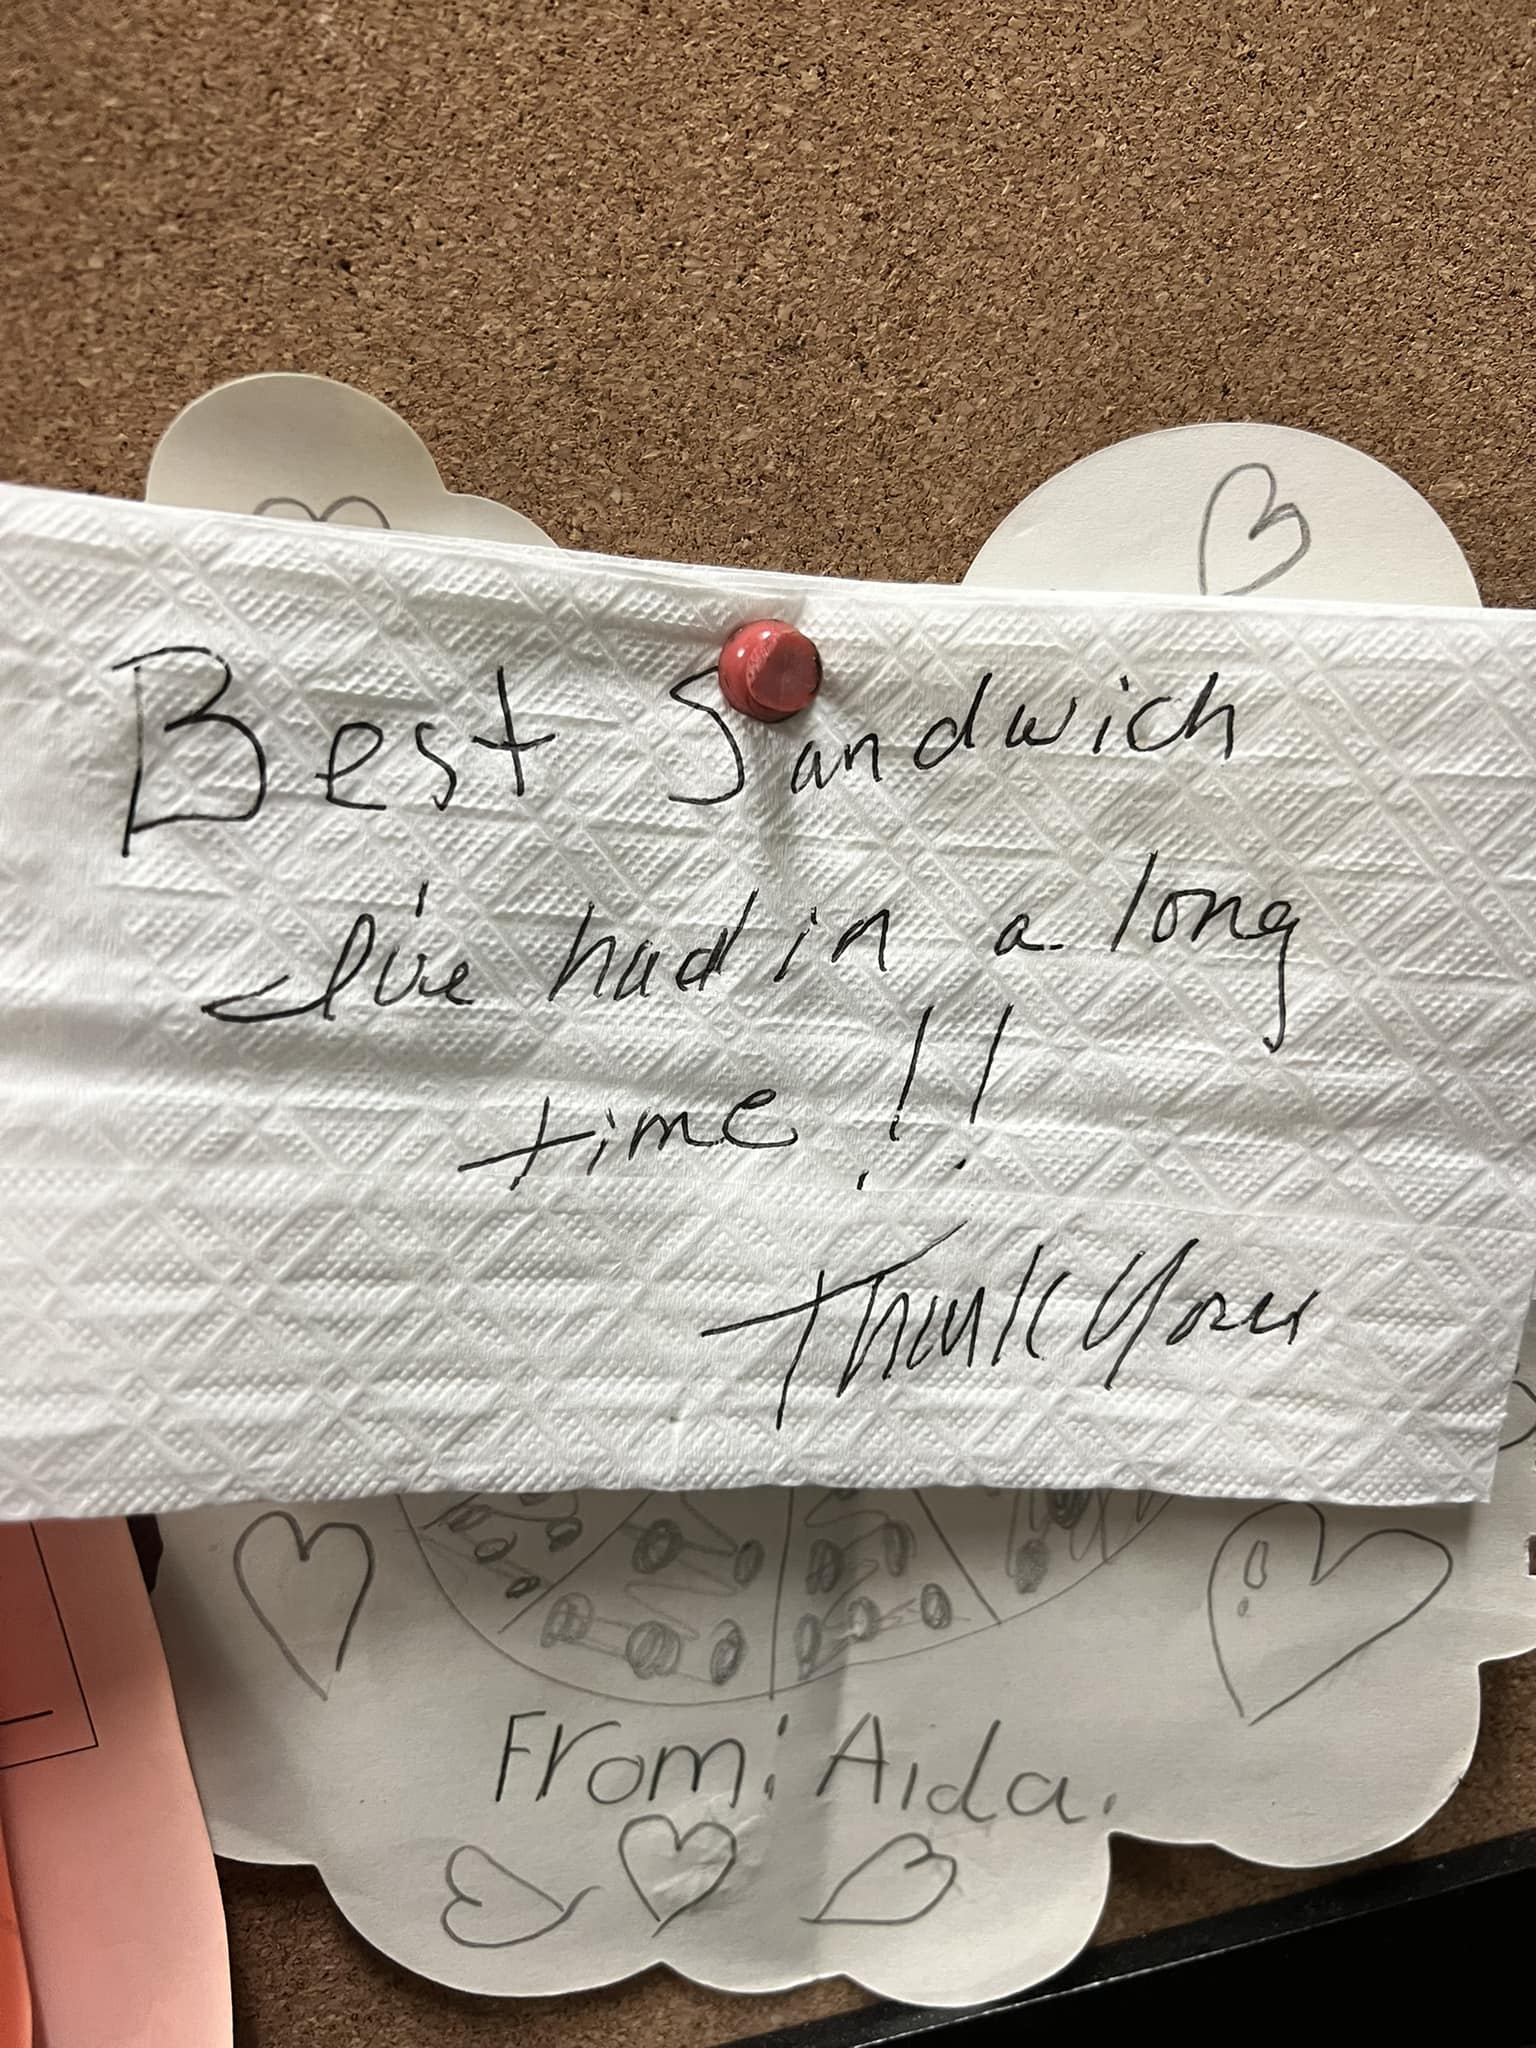 Best Sandwich
I've had in a long
time!!
Thank You
From: Aida.